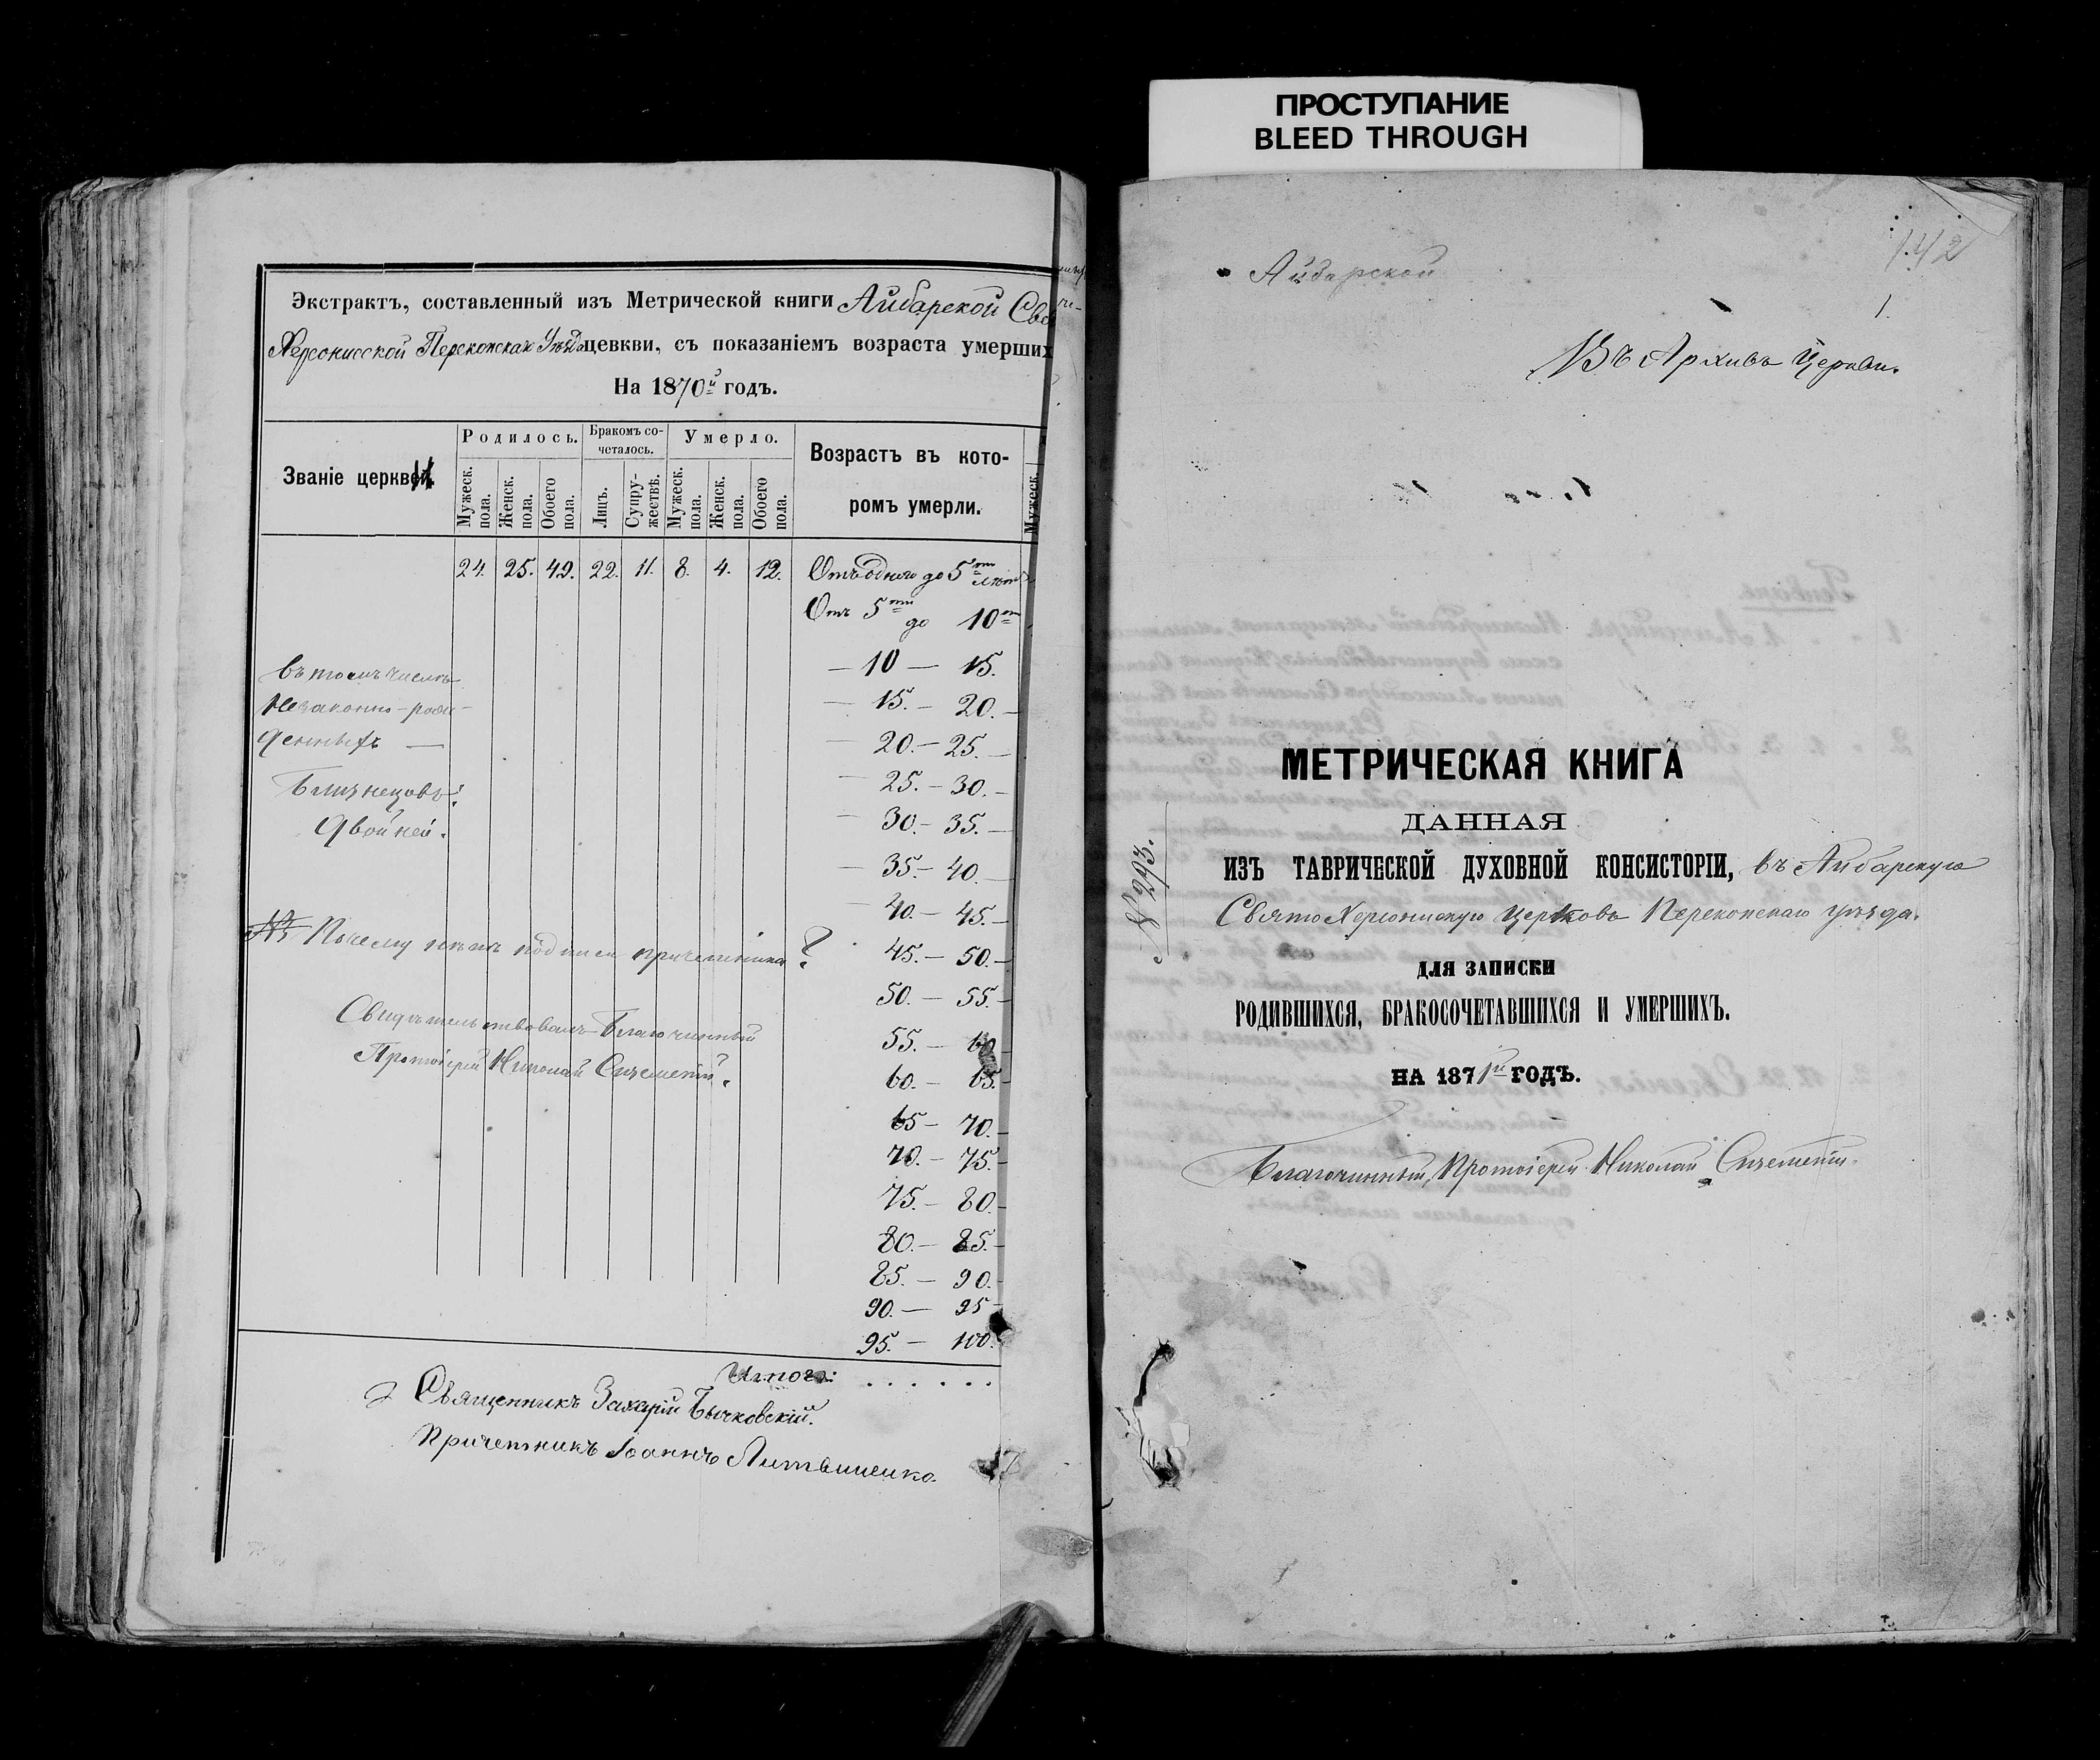 Экстрактъ, составленный изъ Метрической книги Айбарской Свя
Херсонисской Перекопскаг Уѣзда цевкви, съ показаніемъ возраста умерших
На 1870й годъ.
Званіе церквей.
Родилось.
Бракомъ со-
четалось.
Умерло.
Возрастъ въ кото-
ромъ умерли.
Мужеск. пола.
Женск. пола.
Обоего пола.
Лицъ.
Супру-жествъ.
Мужеск. пола.
Женск. пола.
Обоего пола.
Мужеск.
24. 25. 49. 22. 11. 8. 4. 12. Отъ одного до 5ти лѣтъ
Отъ 5ти до 10ти
въ томъ числѣ — 10 — 15.
Незаконно-рож- — 15. — 20. —
денныхъ — — 20. — 25. —
Близнецовъ: — 25. — 30. —
Двойней. — 30. — 35. —
— 35. — 40. —
— 40. — 45. —
Почему нѣтъ подписи причетника? 45. — 50. —
50. — 55. —
Свидѣтельствовалъ Благочинный 55. — 60
Протоіерей Николай 60. — 65. —
65 — 70. —
70. — 75. —
75. — 80. —
80. — 85. —
85. — 90. —
90. — 95 —
95. — 100.
Итого: . . . . . .
Священникъ Захарій Бычковскій.
Причетникъ Іоаннъ Литвиненко.
ПРОСТУПАНИЕ
BLEED THROUGH
142
Айбарской
1.
Въ Архивъ Церкви.
МЕТРИЧЕСКАЯ КНИГА
ДАННАЯ
ИЗЪ ТАВРИЧЕСКОЙ ДУХОВНОЙ КОНСИСТОРІИ, въ Айбарскую
Свято Херсонискую Церковь Перекопскаго уѣзда.
№ 293.
ДЛЯ ЗАПИСКИ
РОДИВШИХСЯ, БРАКОСОЧЕТАВШИХСЯ И УМЕРШИХЪ.
НА 1871й ГОДЪ.
Благочинный, Протоіерей Николай